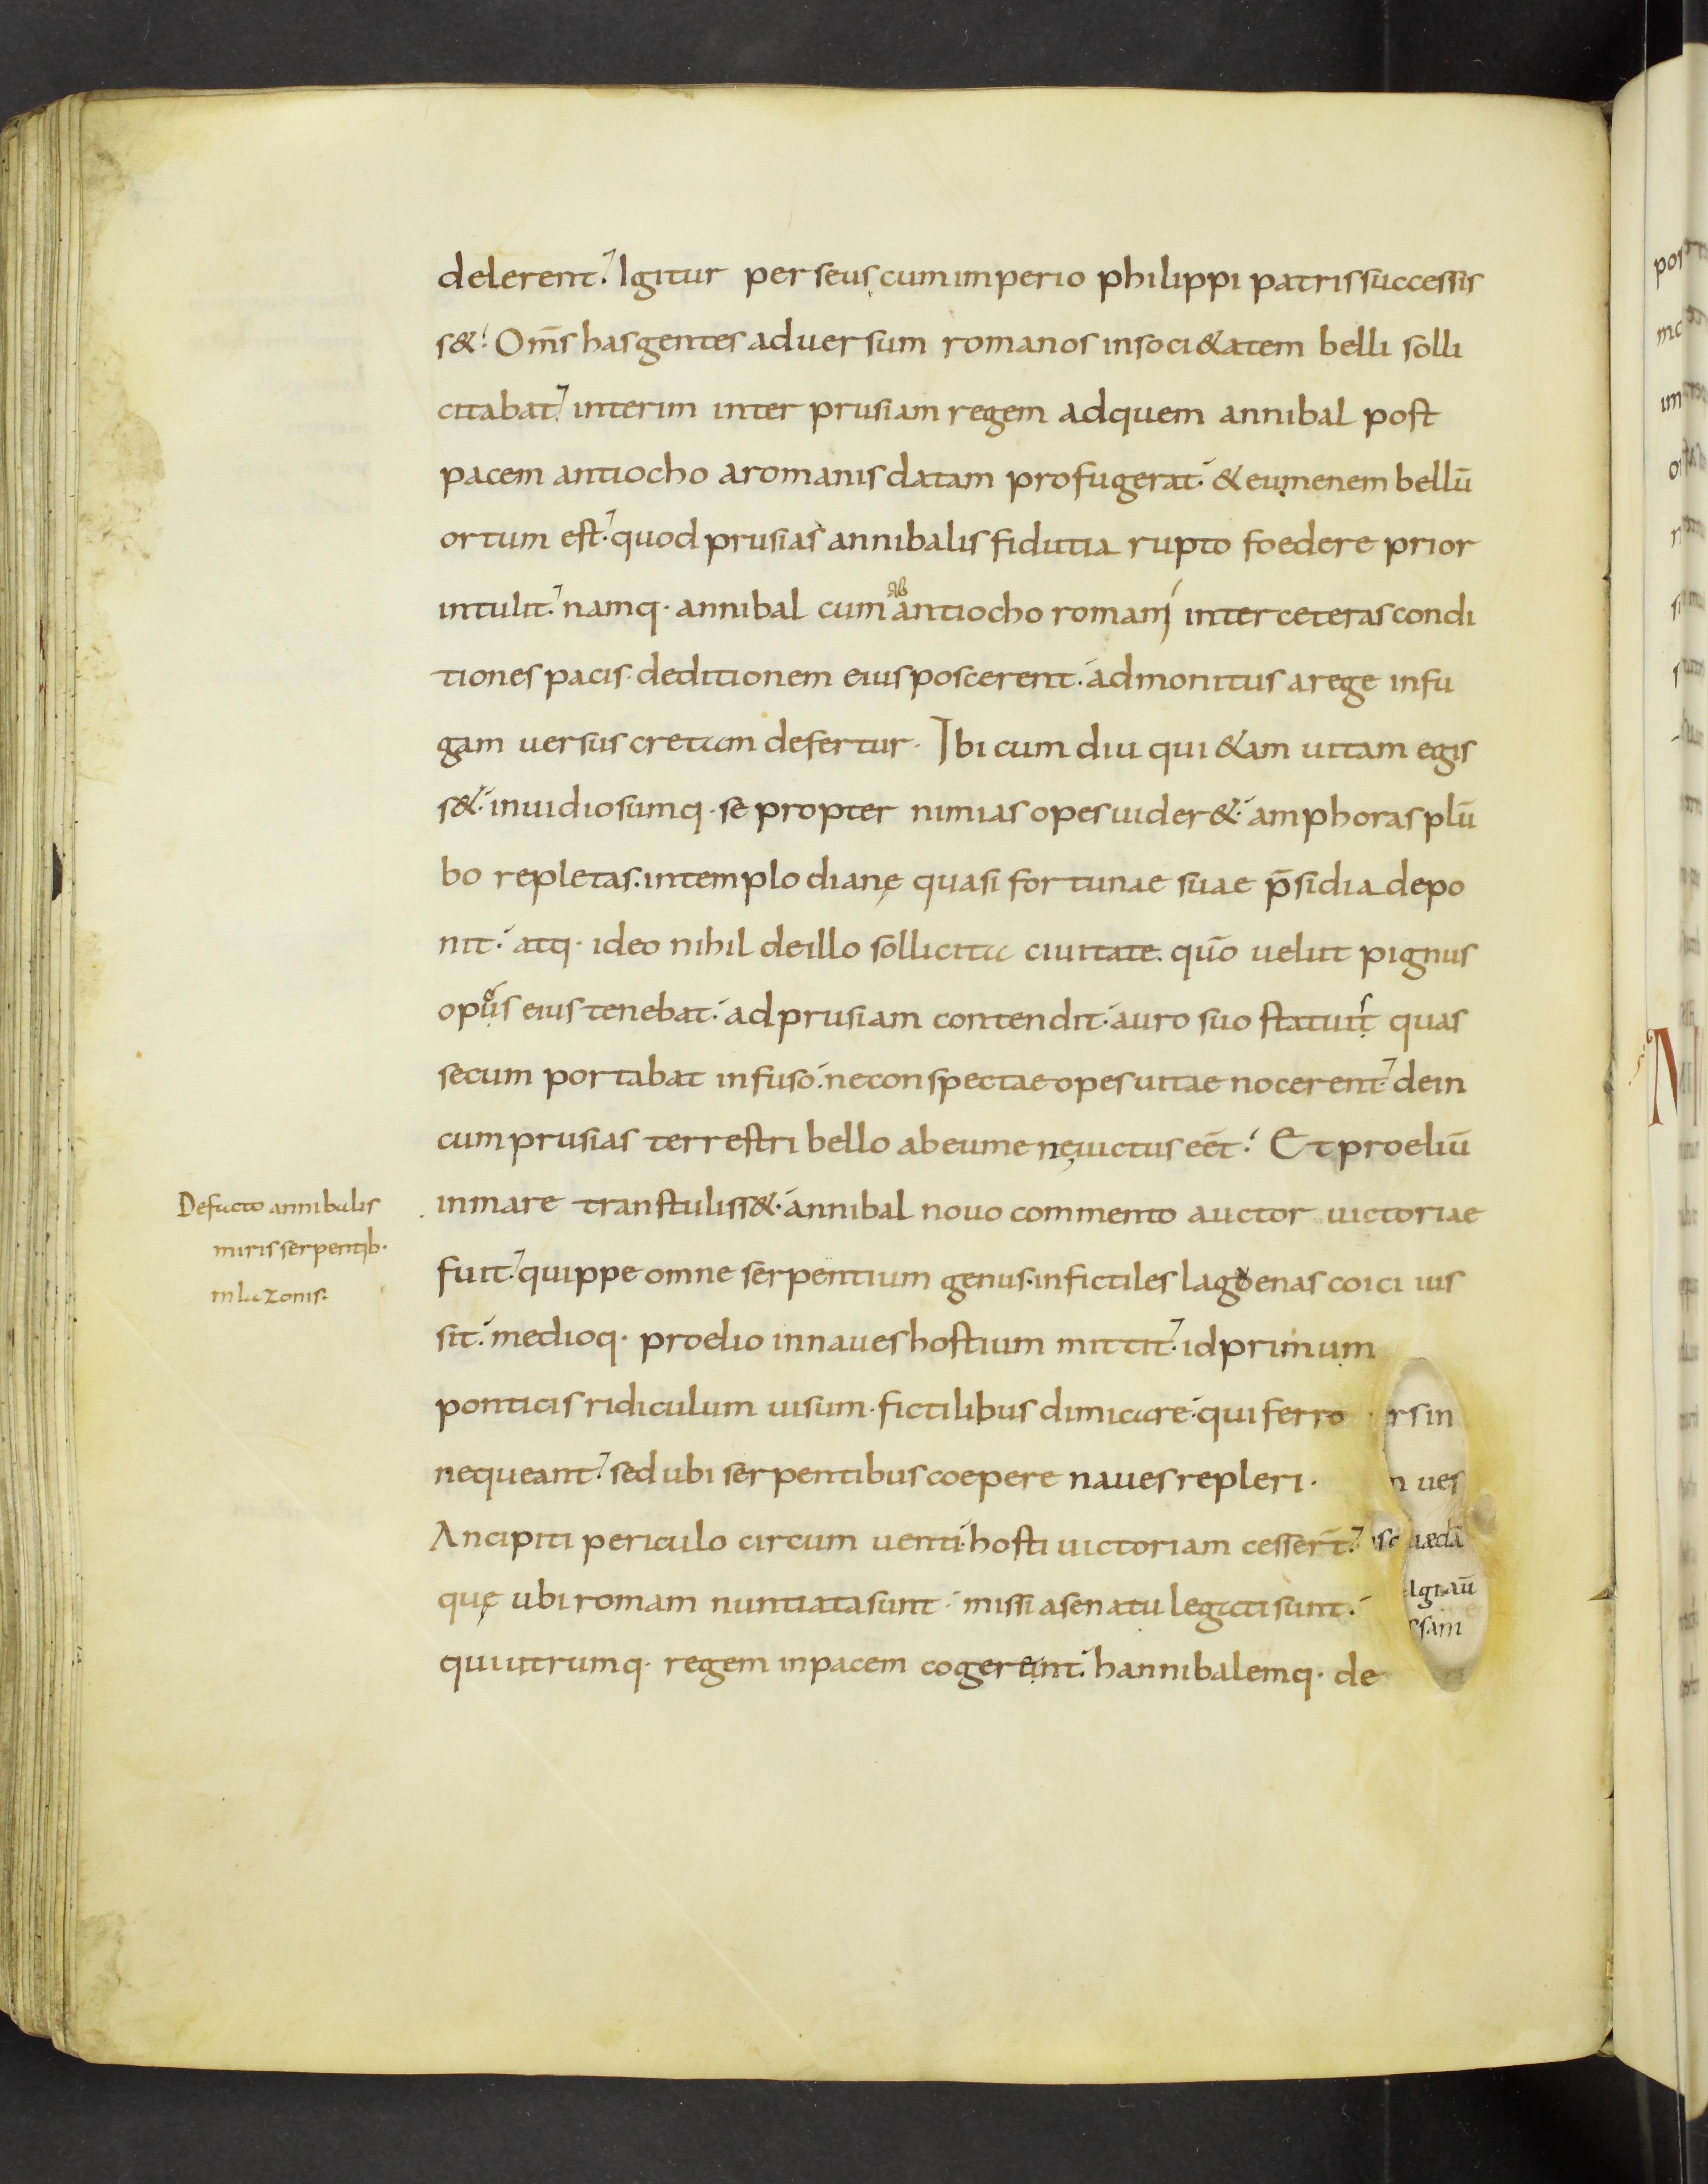 delerent. Igitur perseus cum imperio philippi patris successis
s&. Om̅s has gentes aduersum romanos in soci&atem belli solli
citabat. interim inter prusiam regem ad quem annibal post
pacem antiocho a romanis datam profugerat. & eumenem bellū
ortum est. quod prusias annibalis fidutia rupto foedere prior
intulit. namq· annibal cum ab antiocho romani inter ceteras condi
tiones pacis· deditionem eius poscerent. admonitus a rege in fu
gam uersus cretam defertur. Ibi cum diu qui&am uitam egis
s&. inuidiosumq· se propter nimias opes uider&. amphoras plū
bo repletas. in templo dianę quasi fortunae suae p̄sidia depo
nit. atq· ideo nihil de illo sollicita ciuitate. quō uelut pignus
opes eius tenebat. ad prusiam contendit. auro suo statuis quas
secum portabat infuso. ne conspectae opes uitae nocerent. dein
cum prusias terrestri bello ab eumene uictus eēt. Et proeliū
in mare transtuliss&. annibal nouo commento auctor uictoriae
fuit. quippe omne serpentium genus. in fictiles lagoenas coici ius
sit. medioq· proelio in naues hostium mittit. id primum
ponticis ridiculum uisum· fictilibus dimicare. qui ferro
nequeant. sed ubi serpentibus coepere naues repleri.
Ancipiti periculo circum uenti. hosti uictoriam cesser̄t.
quę ubi romam nuntiata sunt. missi a senatu legati sunt.
qui utrumq· regem in pacem cogerent. hannibalemq· de
De facto annibalis
miris serpentib·
in lazonis.